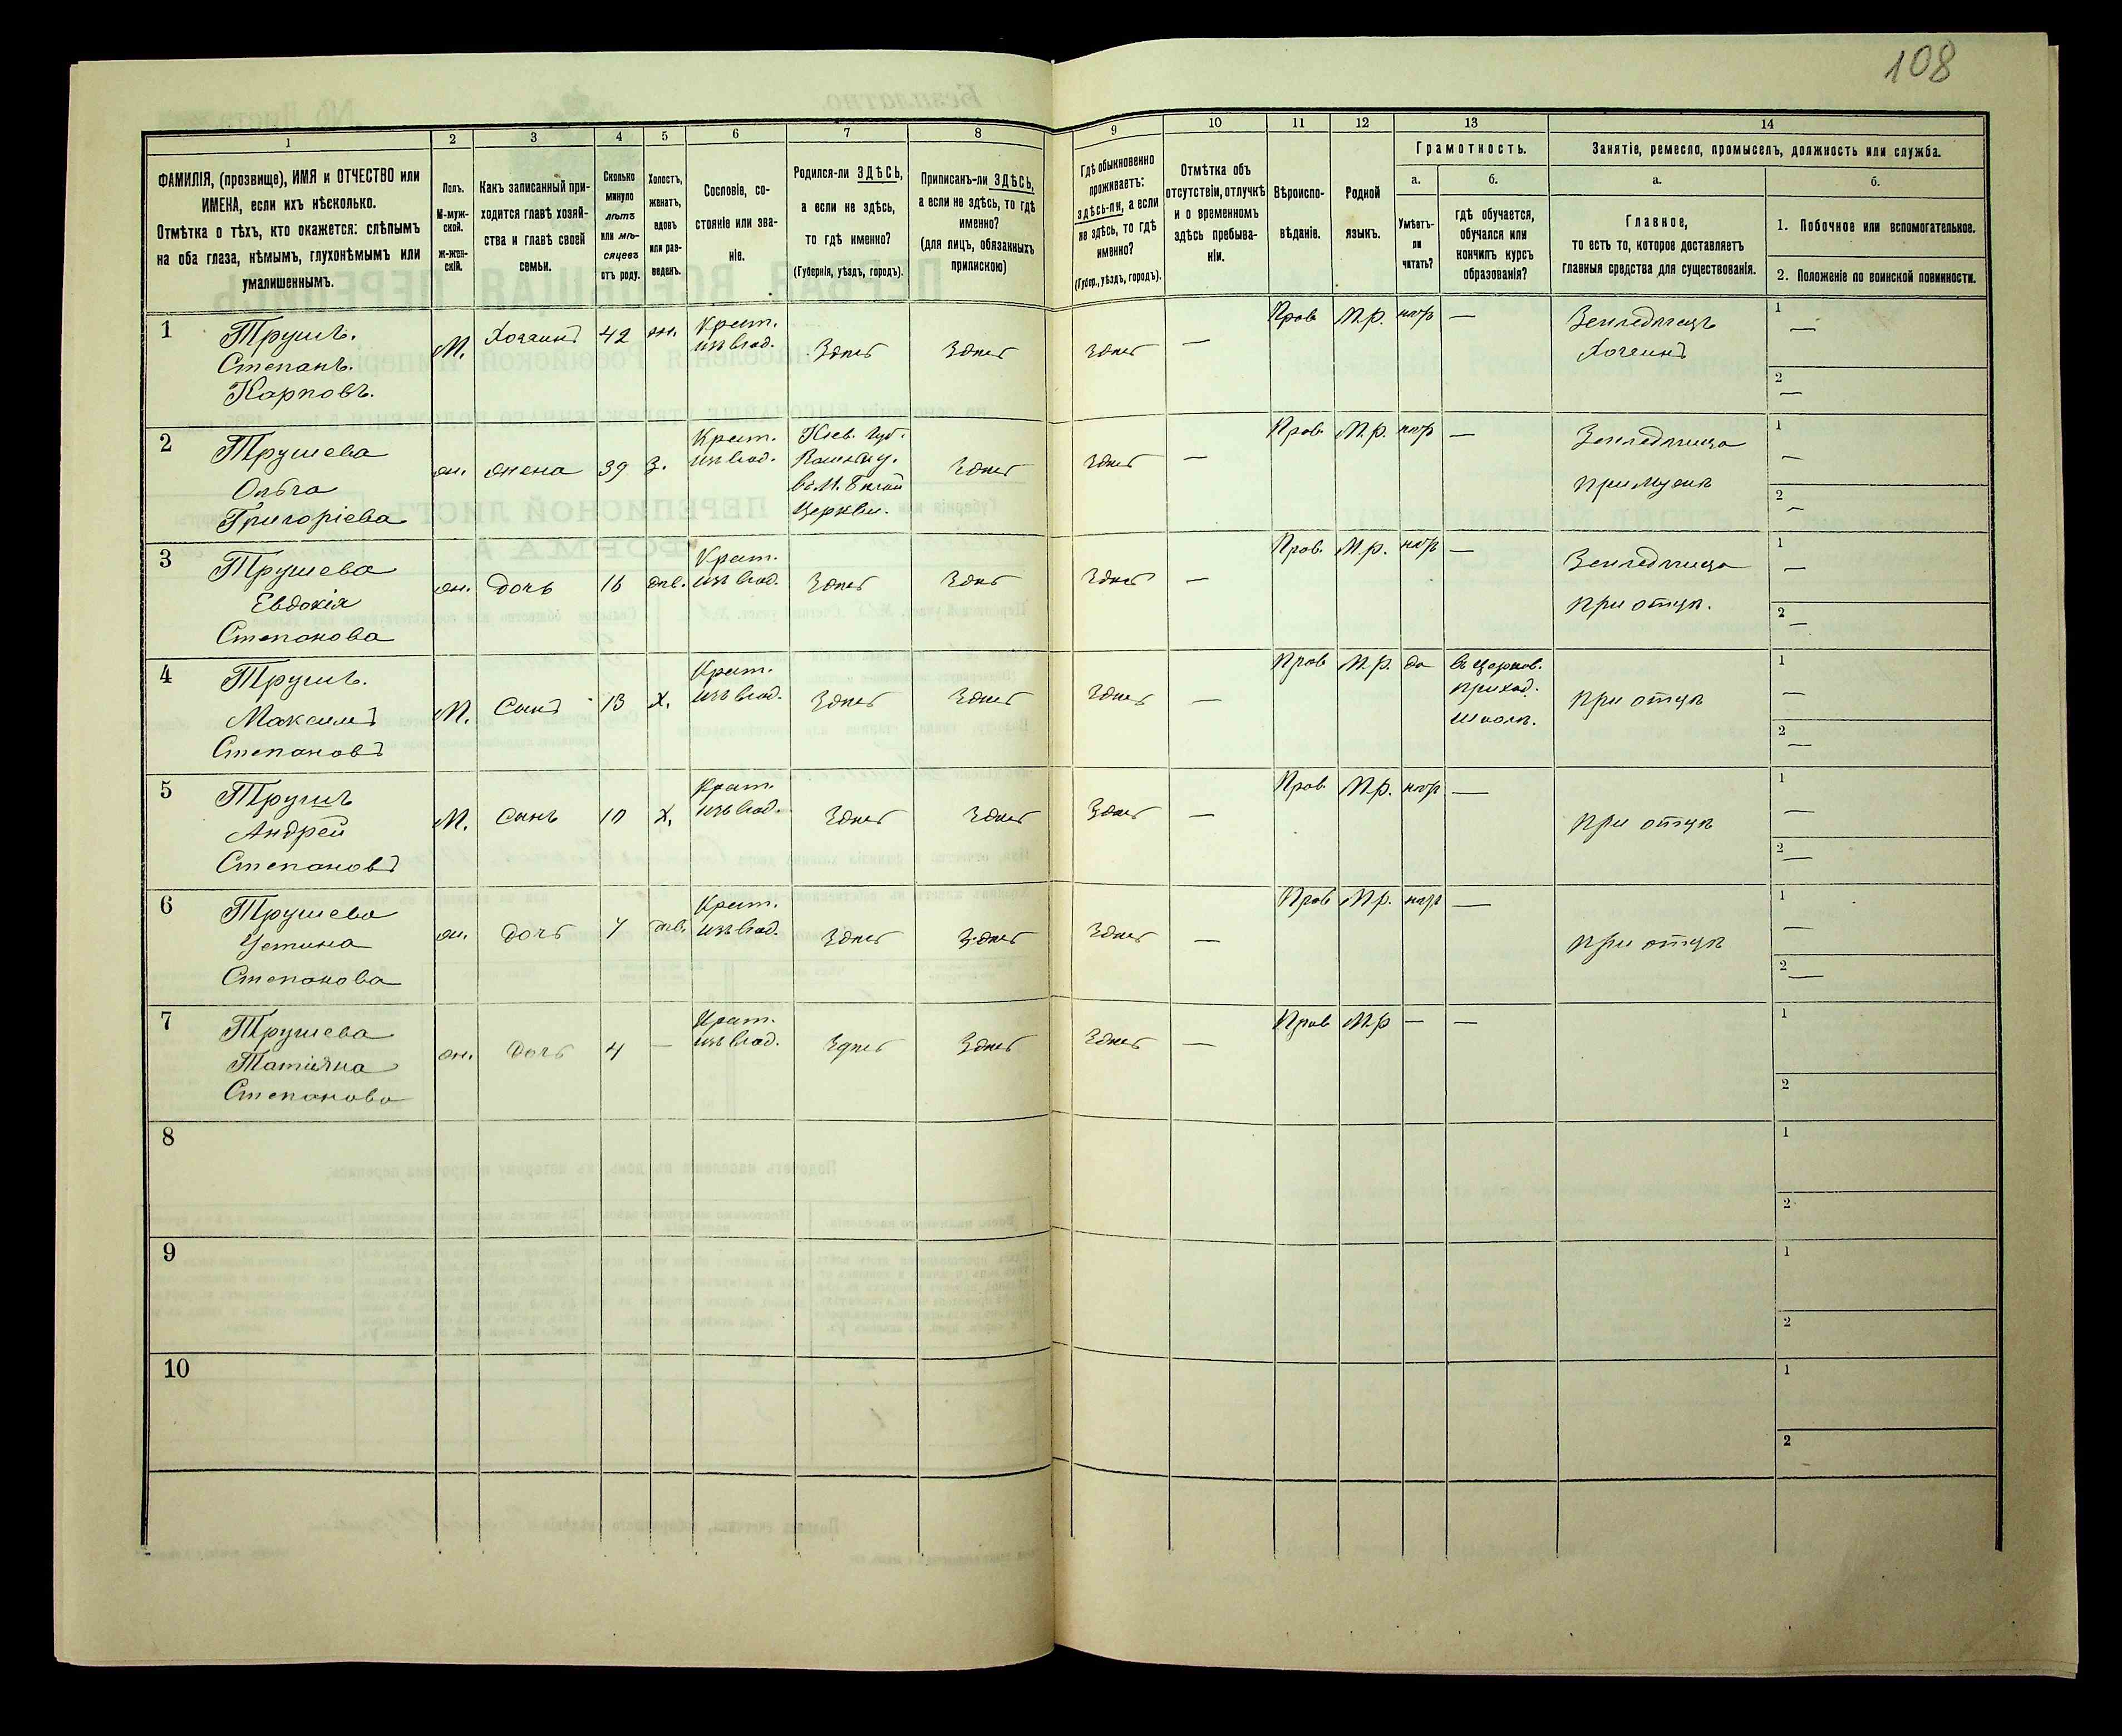 108
1
2
3
4
5
6
7
8
9
10
11
12
13
14
ФАМИЛІЯ, (прозвище), ИМЯ и ОТЧЕСТВО или
ИМЕНА, если ихъ нѣсколько.
Отмѣтка о тѣхъ, кто окажется: слѣпымъ
на оба глаза, нѣмымъ, глухонѣмымъ или
умалишеннымъ.
Полъ.
М-муж-
ской.
Ж-жен-
скій.
Какъ записанный при-
ходится главѣ хозяй-
ства и главѣ своей
семьи.
Сколько
минуло
лѣтъ
или мѣ-
сяцевъ
отъ роду.
Холостъ,
женатъ,
вдовъ
или раз-
веденъ.
Сословіе, со-
стояніе или зва-
ніе.
Родился-ли ЗДѢСЬ,
а если не здѣсь,
то гдѣ именно?
(Губернія, уѣздъ, городъ).
Приписанъ-ли ЗДѢСЬ,
а если не здѣсь, то гдѣ
именно?
(для лицъ, обязанныхъ
припискою)
Гдѣ обыкновенно
проживаетъ:
здѣсь-ли, а если
не здѣсь, то гдѣ
именно?
(Губер., уѣздъ, городъ).
Отмѣтка объ
отсутствіи, отлучкѣ
и о временномъ
здѣсь пребыва-
ніи.
Вѣроиспо-
вѣданіе.
Родной
языкъ.
Грамотность.
а.
Умѣетъ-
ли
читать?
б.
гдѣ обучается,
обучался или
кончилъ курсъ
образованія?
Занятіе, ремесло, промыселъ, должность или служба.
а.
Главное,
то есть то, которое доставляетъ
главныя средства для существованія.
б.
1. Побочное или вспомогательное.
2. Положеніе по воинской повинности.
1 Трушъ.
Степанъ.
Карповъ.
М. Хозяинъ 42 жн. Крест.
изъ влад. Здѣсь Здѣсь Здѣсь — Прав М.р. нѣтъ — Земледѣлецъ
Хозяинъ
1 —
2 —
2 Трушева
Ольга
Григоріева
ж. жена 39 з. Крест.
изъ влад. Кіев. Губ.
въ М. Бѣлой
Церкви. Здѣсь Здѣсь — Прав. М.р. нѣтъ — Земледѣлица
при мужѣ
1 —
2 —
3 Трушева
Евдокія
Степанова
ж. дочь 16 дѣв. Крест.
изъ влад. Здѣсь Здѣсь Здѣсь — Прав. М.р. нѣтъ — Земледѣлица
при отцѣ.
1 —
2 —
4 Трушъ.
Максимъ
Степановъ
М. Сынъ 13 х. Крест.
изъ влад. Здѣсь Здѣсь Здѣсь — Прав М.р. да въ Церков.
приход.
школѣ. при отцѣ
1 —
2 —
5 Трушъ
Андрей
Степановъ
М. Сынъ 10 х. Крест.
изъ влад. Здѣсь Здѣсь Здѣсь — Прав. М.р. нѣтъ — при отцѣ
1 —
2 —
6 Трушева
Устина
Степанова
ж. дочь 7 дѣв. Крест.
изъ влад. Здѣсь Здѣсь Здѣсь — Прав М.р. нѣтъ — при отцѣ
1 —
2 —
7 Трушева
Татіяна
Степанова
ж. дочь 4 — Крест.
изъ влад. Здѣсь Здѣсь Здѣсь — Прав М.р — —
1
2
8
1
2
9
1
2
10
1
2